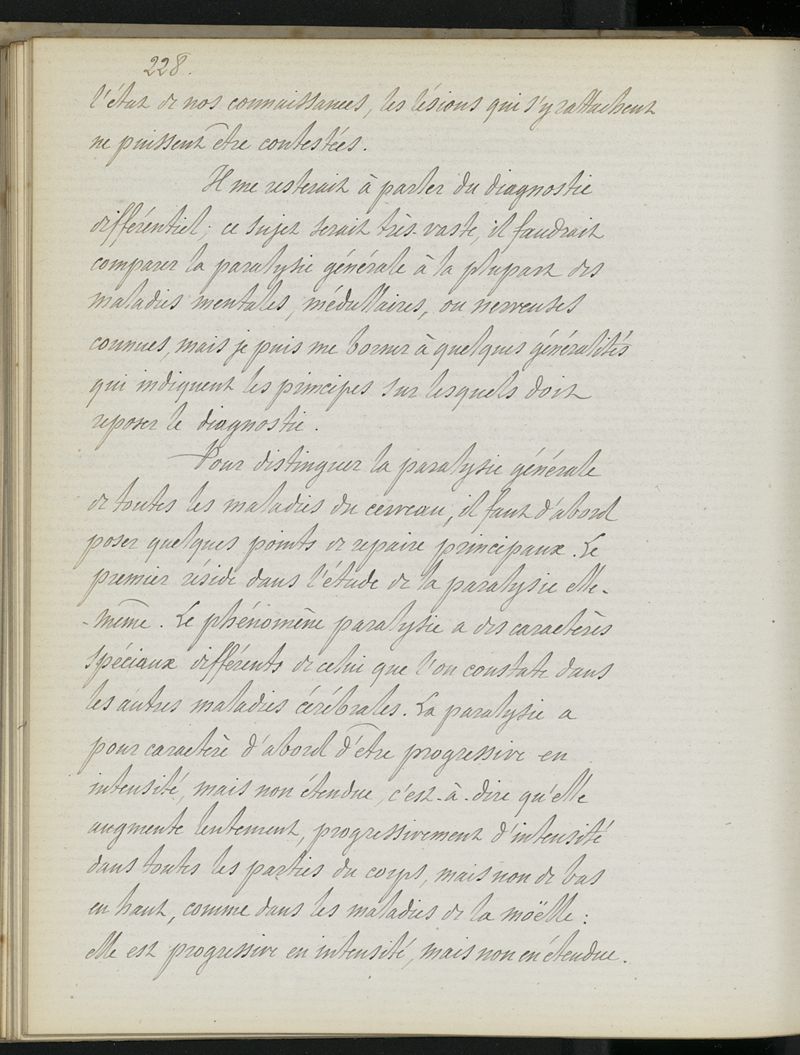 228.
l'état de nos connaissances, les lésions qui s'y rattachent
ne puissent être contestées.
Il me resterait à parler du diagnostic
différentiel; ce sujet serait très-vaste, il faudrait
comparer la paralysie générale à la plupart des
maladies mentales, médullaires, ou nerveuses
connues, mais je puis me borner à quelques généralités
qui indiquent les principes sur lesquels doit
reposer le diagnostic.
Pour distinguer la paralysie générale
de toutes les maladies du cerveau, il faut d'abord
poser quelques points de repaire principaux. Le
premier réside dans l'étude de la paralysie elle-
-même. Le phénomène paralysie a des caractères
spéciaux différents de celui que l'on constate dans
les autres maladies cérébrales. La paralysie a
pour caractère d'abord d'être progressive en
intensité, mais non étendue, c'est-à-dire qu'elle
augmente lentement, progressivement d'intensité
dans toutes les parties du corps, mais non de bas
en haut, comme dans les maladies de la moëlle :
elle est progressive en intensité, mais non en étendue.